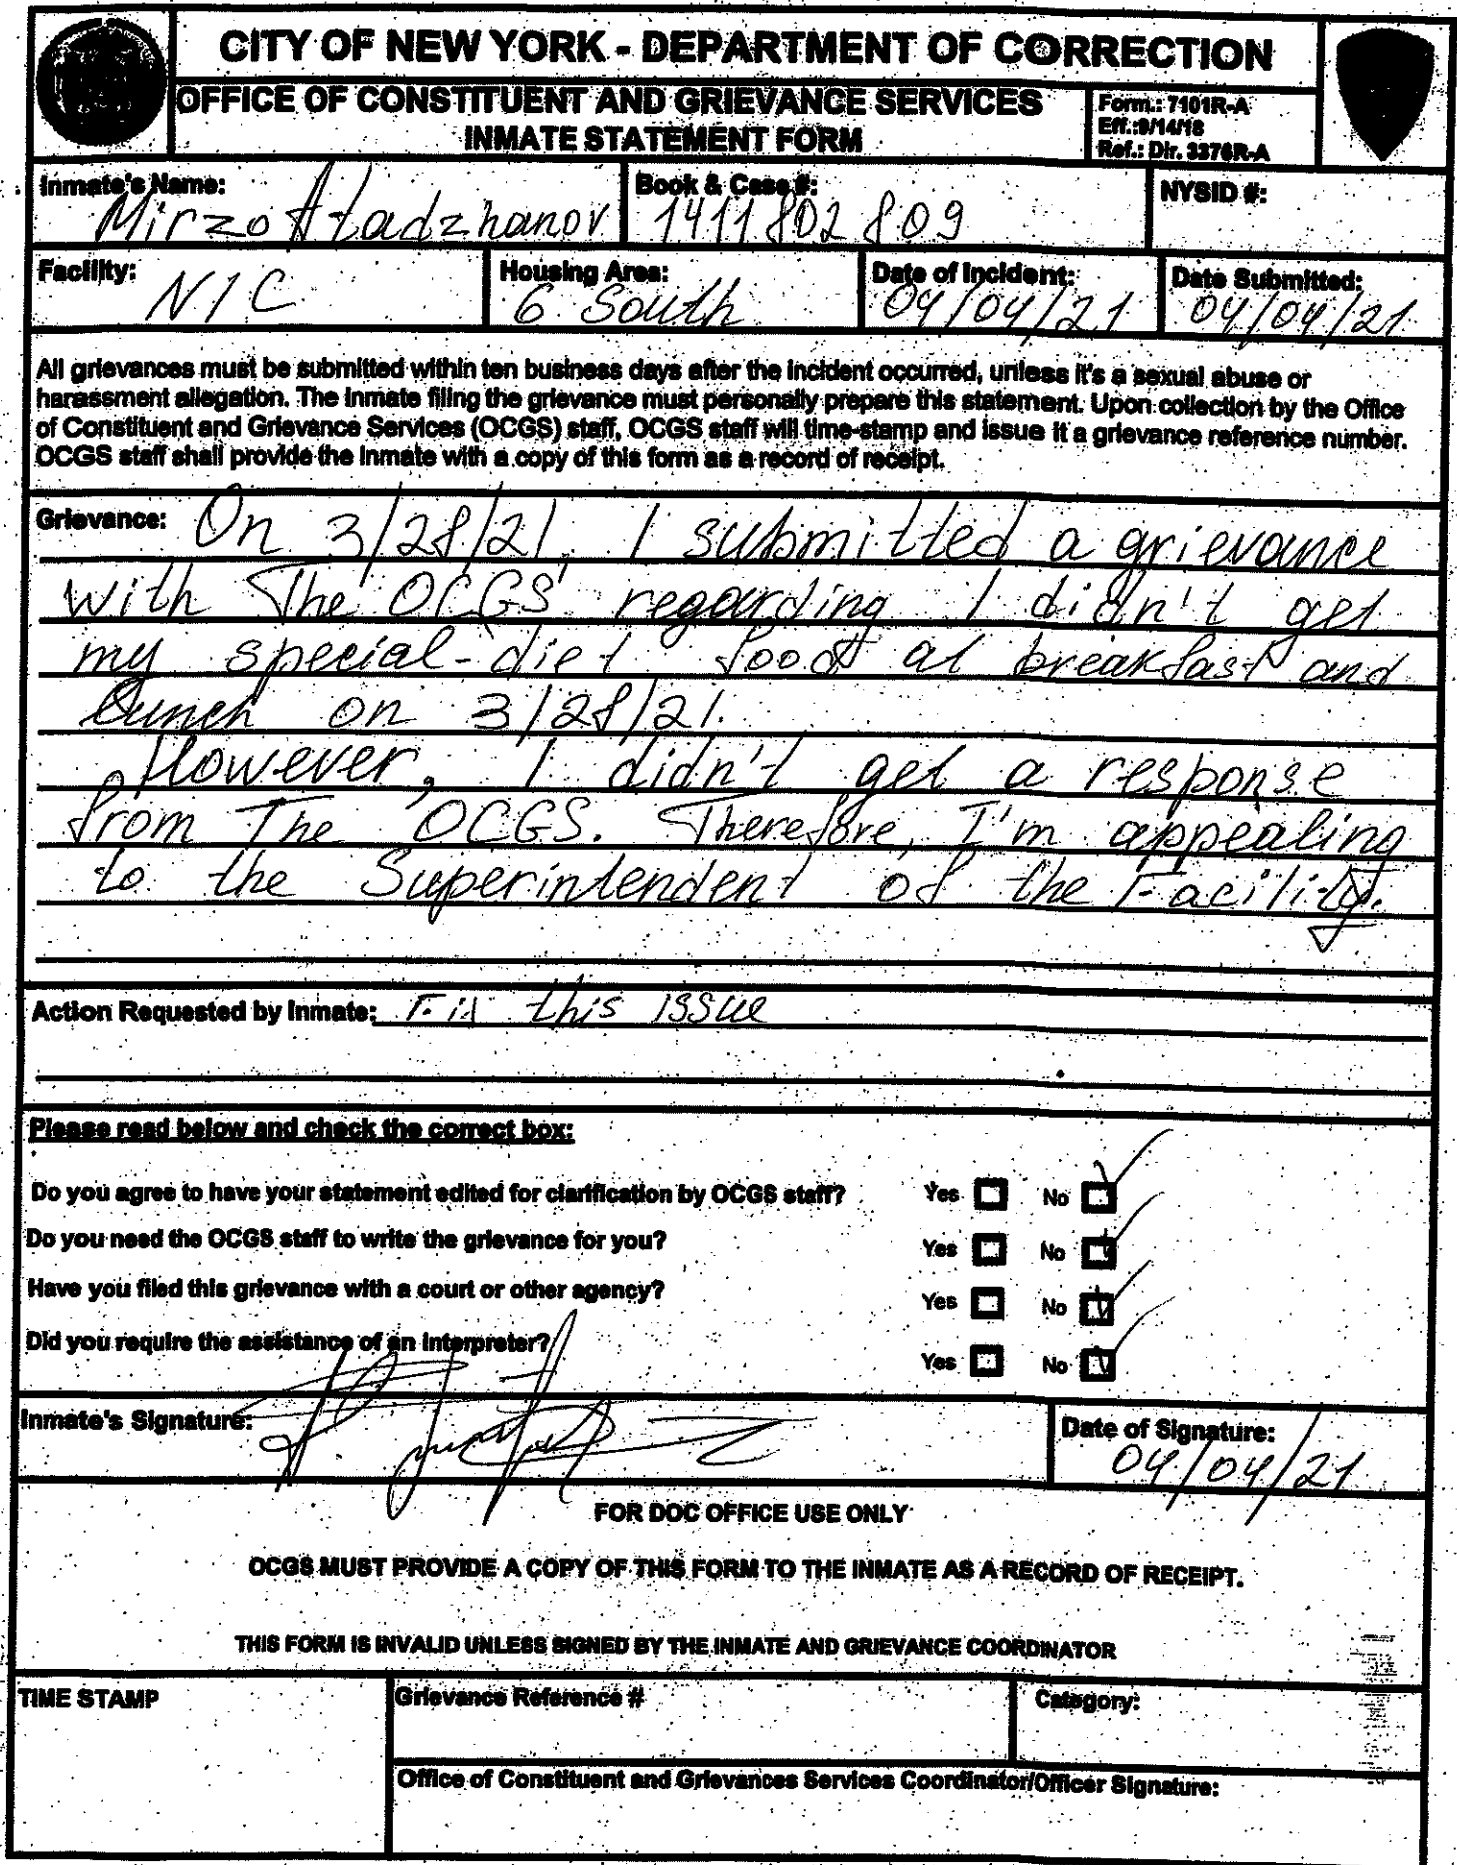 CITY OF NEW YORK - DEPARTMENT OF CORRECTION
OFFICE OF CONSTITUENT AND GRIEVANCE SERVICES
INMATE STATEMENT FORM
Form.: 7101R-A
Eff.:9/14/18
Ref.: Dir. 3376R-A
Inmate's Name:
Mirzo Atadzhanov
Book & Case #:
1411802809
NYSID #:
Facility:
NIC
Housing Area:
6 South
Date of Incident:
04/04/21
Date Submitted:
04/04/21
All grievances must be submitted within ten business days after the incident occurred, unless it's a sexual abuse or
harassment allegation. The inmate filing the grievance must personally prepare this statement. Upon collection by the Office
of Constituent and Grievance Services (OCGS) staff, OCGS staff will time-stamp and issue it a grievance reference number.
OCGS staff shall provide the inmate with a copy of this form as a record of receipt.
Grievance: On 3/28/21, I submitted a grievance
with The OCGS regarding I didn't get
my special-diet food at breakfast and
Lunch on 3/28/21.
However, I didn't get a response
from The OCGS. Therefore, I'm appealing
to the Superintendent of the Facility.
Action Requested by Inmate: Fix this issue
Please read below and check the correct box:
Do you agree to have your statement edited for clarification by OCGS staff? Yes No
Do you need the OCGS staff to write the grievance for you? Yes No
Have you filed this grievance with a court or other agency? Yes No
Did you require the assistance of an interpreter? Yes No
Inmate's Signature:
Date of Signature:
04/04/21
FOR DOC OFFICE USE ONLY
OCGS MUST PROVIDE A COPY OF THIS FORM TO THE INMATE AS A RECORD OF RECEIPT.
THIS FORM IS INVALID UNLESS SIGNED BY THE INMATE AND GRIEVANCE COORDINATOR
TIME STAMP
Grievance Reference #
Category:
Office of Constituent and Grievances Services Coordinator/Officer Signature: